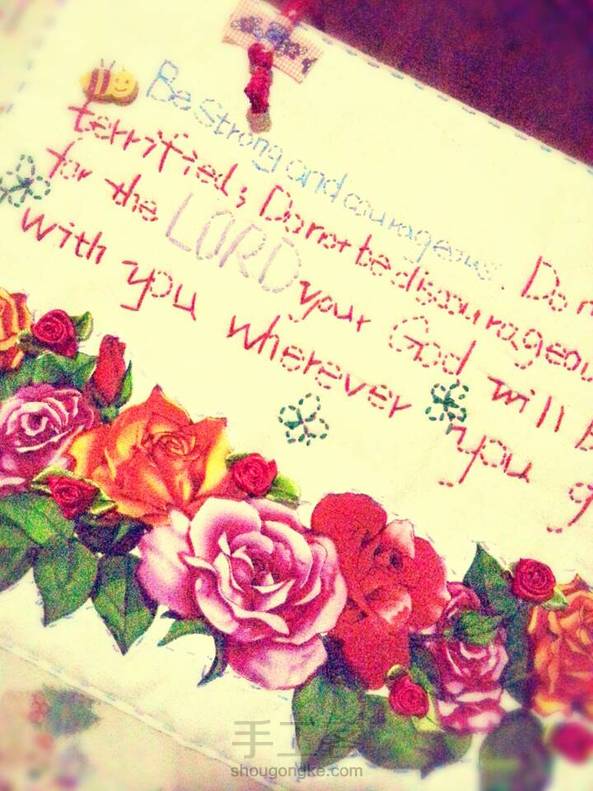 Be Strong and courageous. Do n
terrified; Do not be discourageou
for the LORD your God will b
with you wherever you g
手工客
shougongke.com